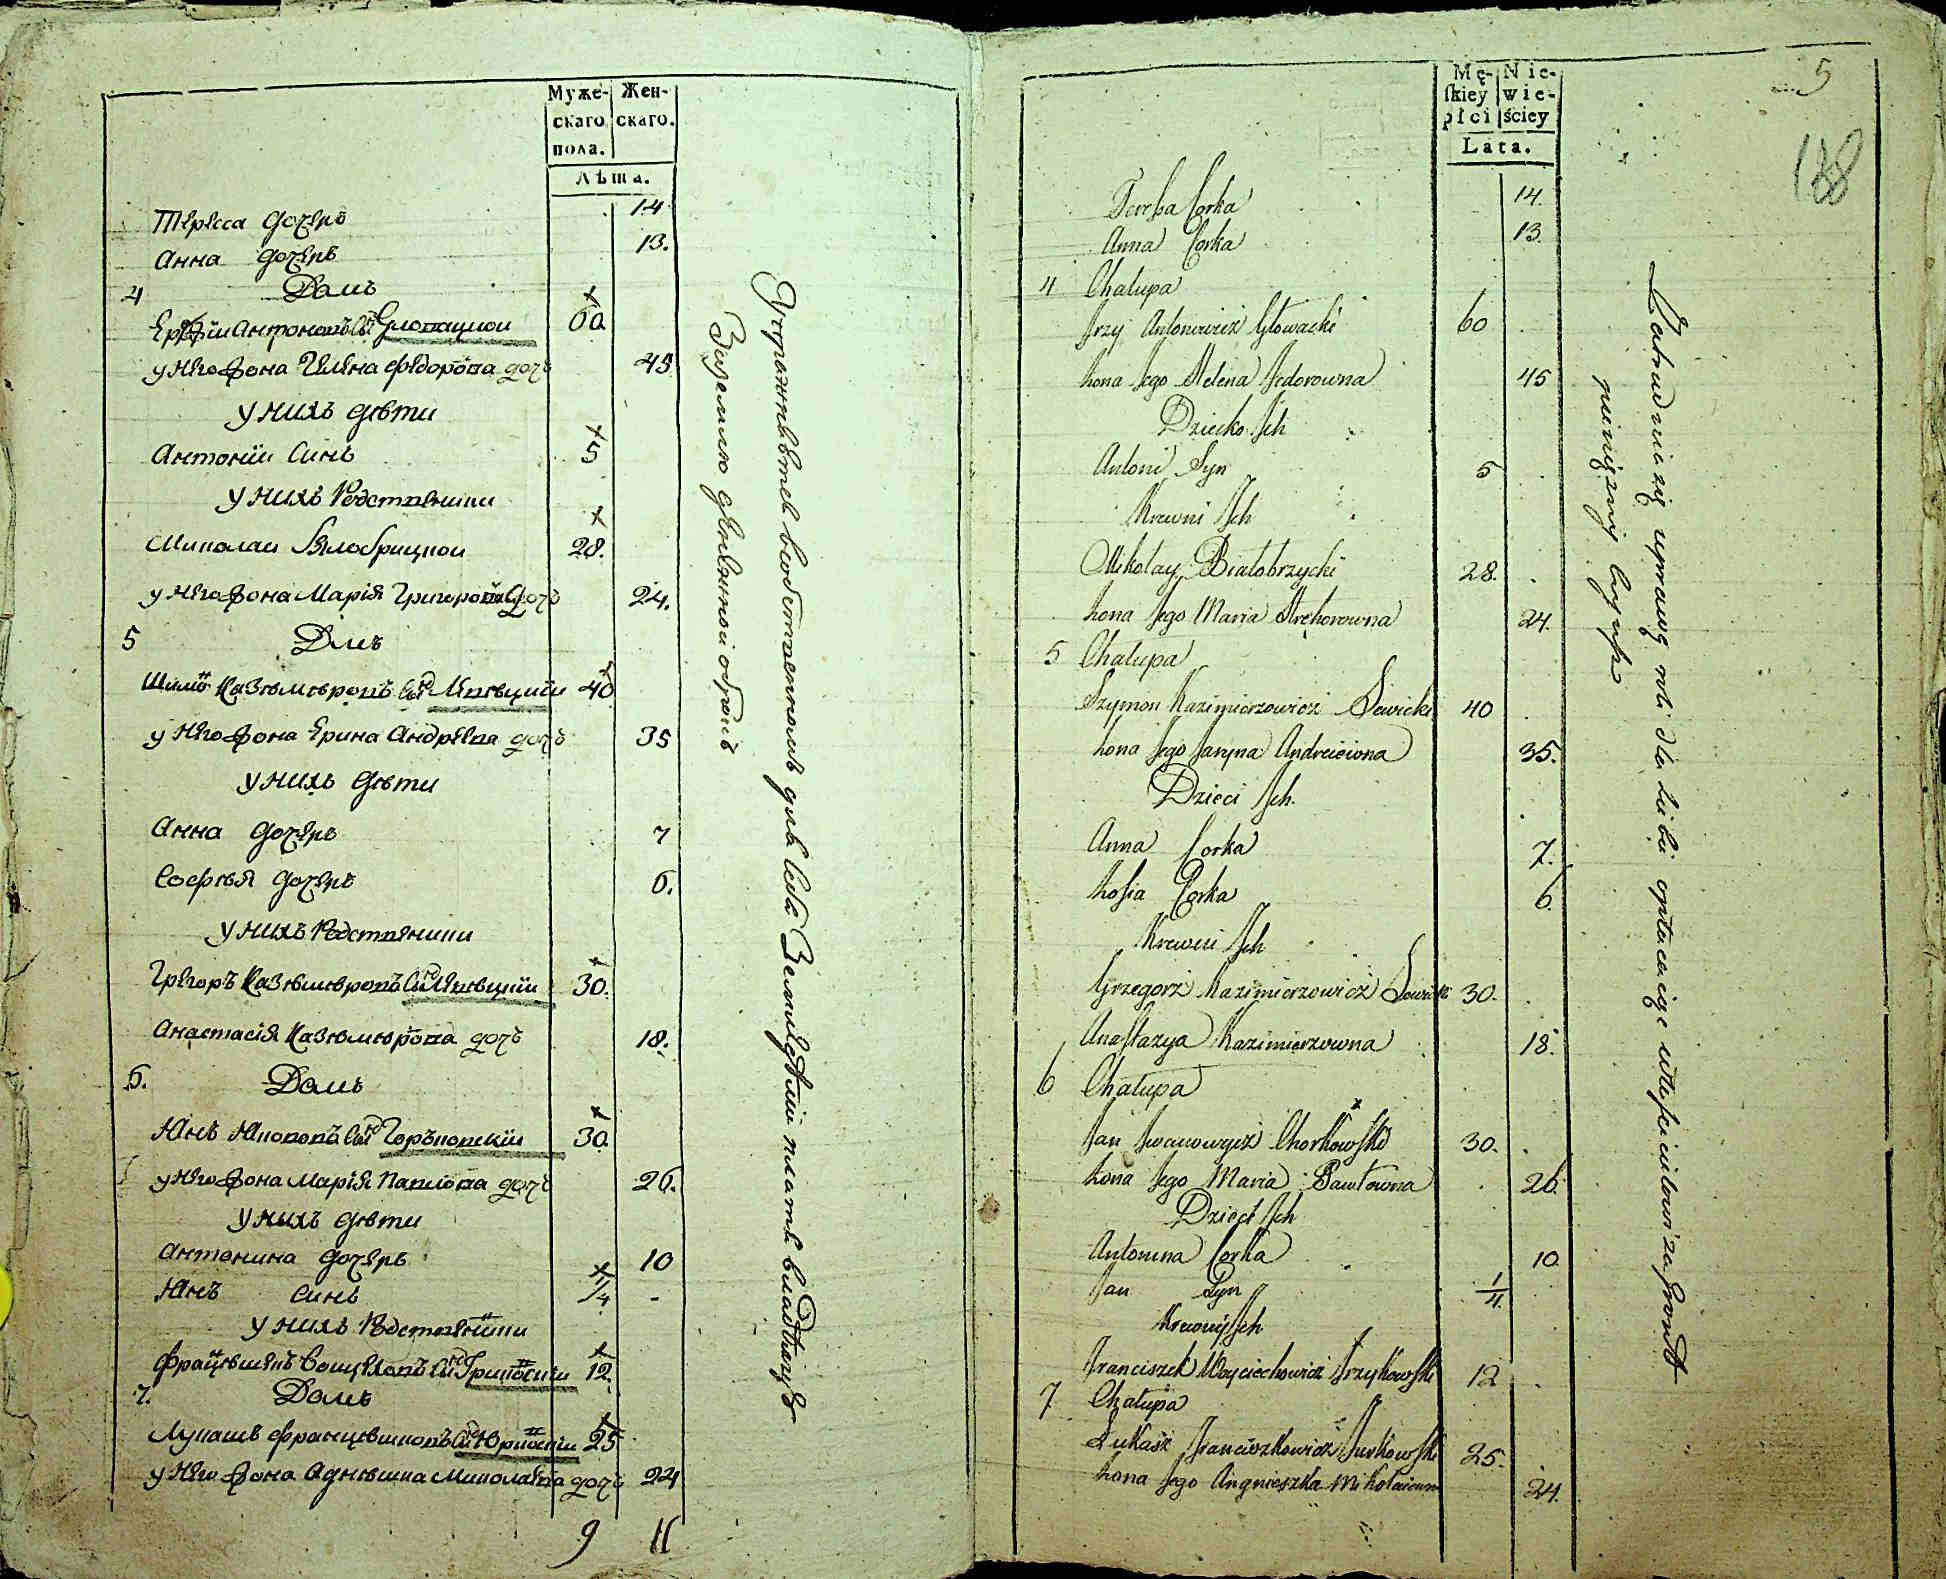 Муже-
скаго
пола.
Жен-
скаго.
Лѣта.
Тереса дочерь 14
Анна дочерь 13.
4 Домъ
Антоновъ Сынъ Гловацкои 60
у него жона Гелена Федорова дочь 45
у нихъ дѣти
Антоній Синъ 5
у нихъ Родственики
Миколаи Бялобрицкои 28.
у него жона Марія Григорова дочь 24.
5 Домъ
Шимонъ Казѣмѣровъ Сынъ Левѣцкій 40
у него жона Ерина Андреева дочь 35
у нихъ дѣти
Анна дочерь 7
Софѣя дочерь 6.
у нихъ Родственики
Грегоръ Казѣмѣровъ Сынъ Левѣцкій 30.
Анастасія Казѣмѣрова дочь 18.
6. Домъ
Янъ Яновъ Сынъ Горъковскій 30.
у него жона Марія Павлова дочь 26.
у нихъ дѣти
Антонина дочерь 10
Янъ Синъ 1/4 -
у нихъ Родственики
Сынъ 12.
7. Домъ
Лукашъ Францѣшковъ Сынъ 25
у него жона Агнѣшка Миколаева дочь 24
9 11
землю денежной оброкъ
5
188
Mę-
skiey
płci
Nie-
wie-
ściey
Lata.
Teressa Corka 14.
Anna Corka 13.
4 Chałupa
Jrzy Antonowicz Głowacki 60
Żona Jego Helena Fedorowna 45
Dziecko Jch
Antoni Syn 5
Krewni Jch
Mikołay Białobrzycki 28.
Żona Jego Maria Hrehorowna 24.
5 Chałupa
Szymon Kazimierzowicz Lewicki 40
Żona Jego Jaryna Andreiewna 35.
Dzieci Jch.
Anna Corka 7.
Zosia Corka 6.
Krewni Jch
Grzegorz Kazimierzowicz Lewicki 30.
Anastazya Kazimierzowna 18.
6 Chałupa
Jan Janowicz Chorkowski 30.
Żona Jego Maria Pawłowna 26.
Dzieci Jch
Antonina Corka 10
Jan Syn 1/4.
Krewni Jch
Franciszek Woyciechowicz Jrzykowski 12
7 Chałupa
Łukasz Franciszkowicz Jurkowski 25.
Żona Jego Angnieszka Mikołaiewna 24.
Zatrudnia się uprawą roli dla siebie opłacaiąc